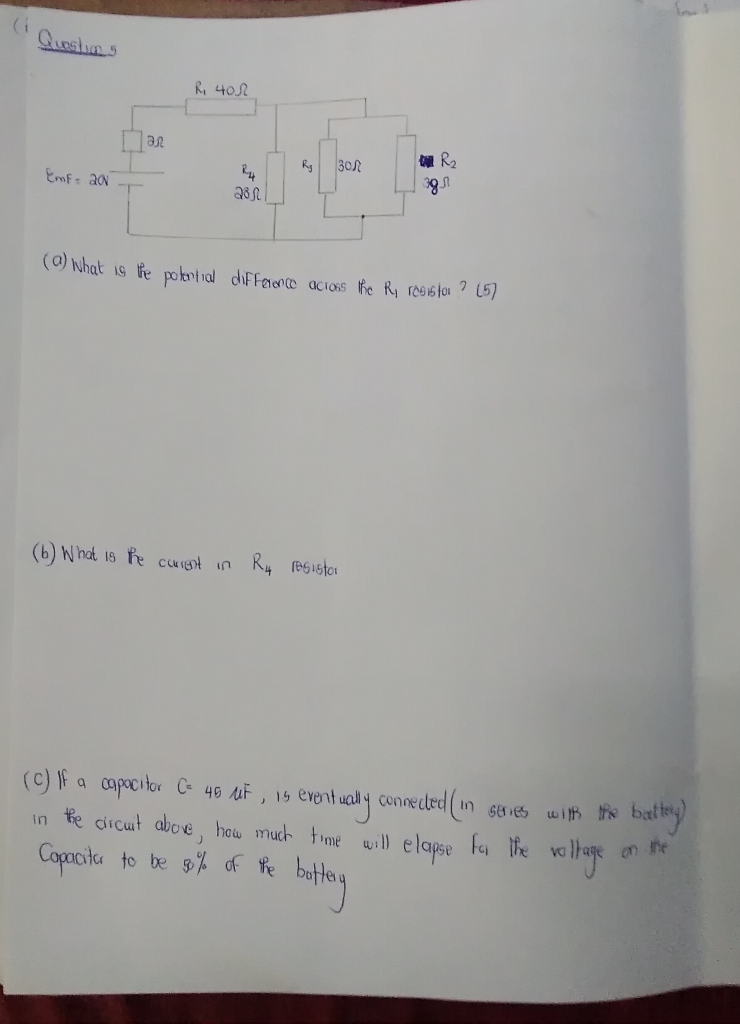 (i
Questions
R₁ 40Ω
2Ω
Emf = 20V
R₄
28Ω
R₃
30Ω
R₂
38Ω
(a) What is the potential difference across the R₁ resistor ? (5)
(b) What is the current in R₄ resistor
(c) If a capacitor C= 45 μF, is eventually connected (in series with the battery)
in the circuit above, how much time will elapse for the voltage on the
Capacitor to be 50% of the battery